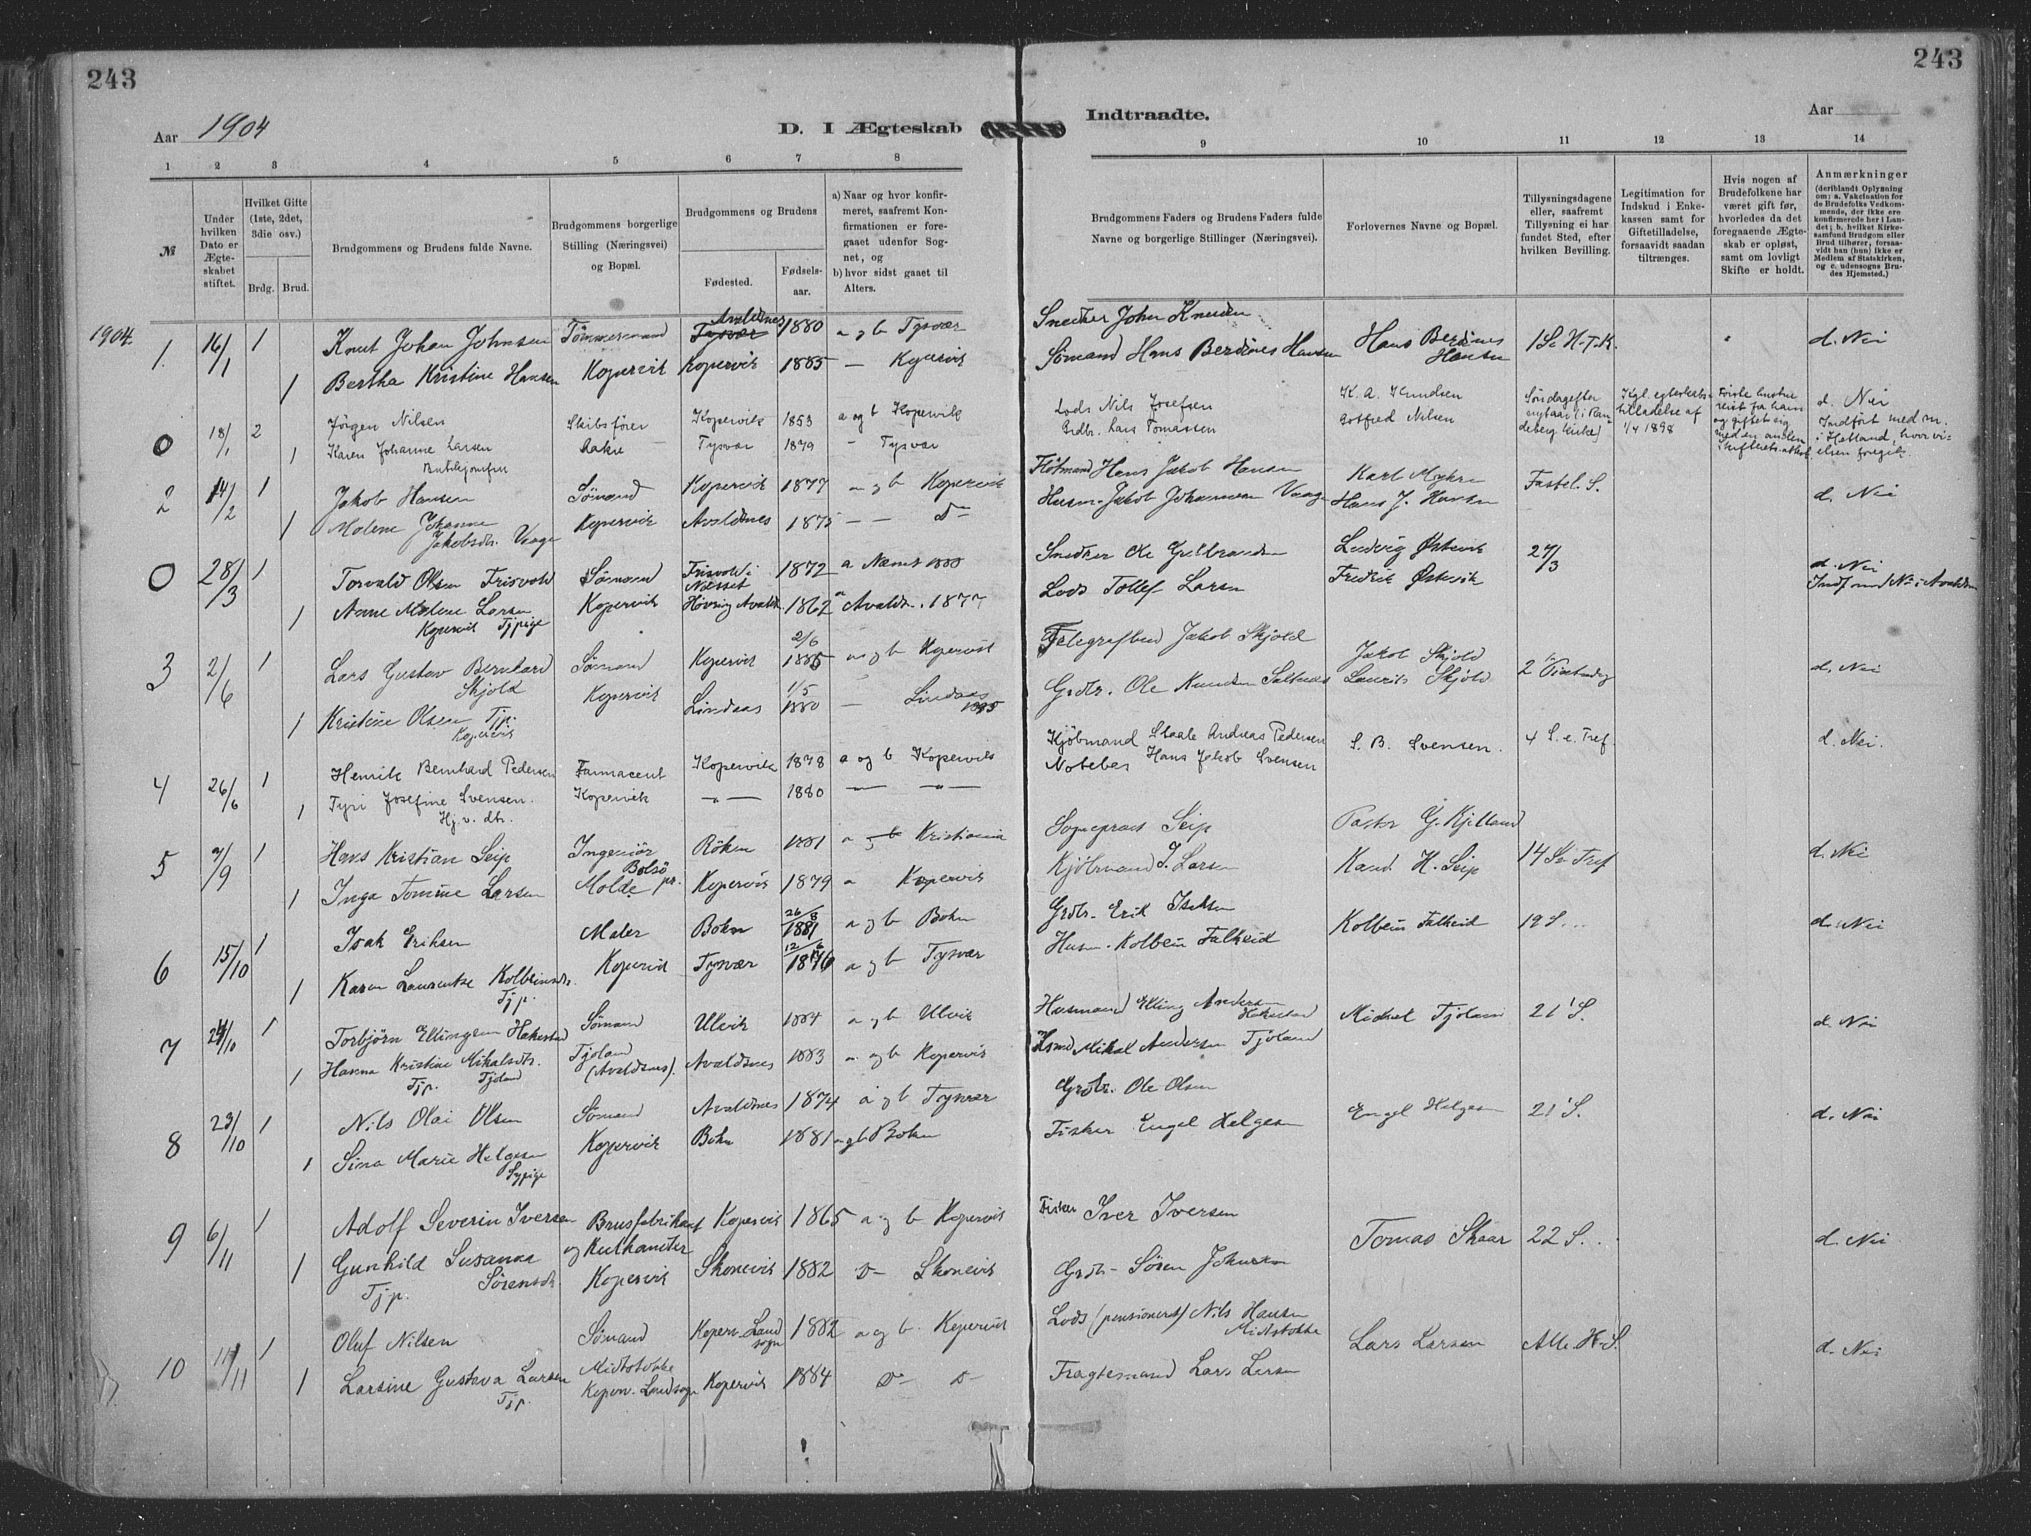 243
243
Aar 1904
D. I Ægteskab Indtraadte.
Aar
1 2 3 4 5 6 7 8 9 10 11 12 13 14
№
Under hvilken Dato er Ægteskabet stiftet.
Hvilket Gifte (1ste, 2det, 3die osv.)
Brdg. Brud.
Brudgommens og Brudens fulde Navne.
Brudgommens borgerlige Stilling (Næringsvei) og Bopæl.
Brudgommens og Brudens
Fødested.
Fødselsaar.
a) Naar og hvor konfirmeret, saafremt Konfirmationen er foregaaet udenfor Sognet, og
b) hvor sidst gaaet til Alters.
Brudgommens Faders og Brudens Faders fulde Navne og borgerlige Stillinger (Næringsvei).
Forlovernes Navne og Bopæl.
Tillysningsdagene eller, saafremt Tillysning ei har fundet Sted, efter hvilken Bevilling.
Legitimation for Indskud i Enkekassen samt for Giftetilladelse, forsaavidt saadan tiltrænges.
Hvis nogen af Brudefolkene har været gift før, hvorledes da det foregaaende Ægteskab er opløst, samt om lovligt Skifte er holdt.
Anmærkninger
(deriblandt Oplysning om: a. Vakcination for de Brudefolks Vedkommende, der ikke ere konfirmerede her i Landet; b. hvilket Kirkesamfund Brudgom eller Brud tilhører, forsaavidt han (hun) ikke er Medlem af Statskirken, og c. udensogns Brudes Hjemsted.)
1904.
1. 16/1 1 Knut Johan Johnsen Tømmermand Avaldnes Tysvær 1880 a og b Tysvær Snedker John Knudsen Hans Berdines Hansen 1 S. H.T.K. d. Nei
1 Bertha Kristine Hansen Kopervik Kopervik 1885 — Kopervik Sømand Hans Berdines Hansen
0 18/1 2 Jørgen Nilsen Skibsfører Kopervik 1853 a og b Kopervik Lods Nils Josefsen K. A. Knudsen Søndag efter nytaar (i Randeberg kirke) Kgl. egteskabstilladelse af 1/4 1898 d. Nei
1 Karen Johanne Larsen Aakre Tysvær 1879 — Tysvær Grdbr. Lars Tomassen Gotfred Nilsen Indført med nr. i Hetland, hvor vielsen foregik.
2 14/2 1 Jakob Hansen Sømand Kopervik 1877 a og b Kopervik Hans Jakob Hansen Karl Myhre Fastel. S. d. Nei
1 Molene Johanne Jakobsdtr. Vaage Kopervik Avaldnes 1875 — — Do Husm. Jakob Johannesen Vaage Hans J. Hansen
0 28/3 1 Torvald Olsen Frisvold Sømand Frisvold i Nesset 1872 a Nesset Snedker Ole Gulbrandsen Ludvig Østevik 27/3 d. Nei
1 Anne Malene Larsen Kopervik Tjpige Kopervik Høvrig Avaldn 1862 a Avaldn. 1877 Lods Tollef Larsen Fredrik Østevik
3 2/6 1 Lars Gustav Bernhard Skjold Sømand Kopervik 2/6 1885 a og b Kopervik Telegrafbud Jakob Skjold Jakob Skjold d. Nei
1 Kristine Olsen Tjp. Kopervik Kopervik Lindaas 1/5 1880 — Lindaas 1895 Grdbr. Ole Knudsen Laurits Skjold
4 26/6 1 Henrik Bernhard Pedersen Farmacent Kopervik 1878 a og b Kopervik Kjøbmand Staale Andreas Pedersen S. B. Svensen. 4 S. e. Tref. d. Nei.
1 Tyri Josefine Svensen. Hj. v. dtr. Kopervik —"— 1880 — —"— Notebas Hans Jakob Svensen
5 /9 1 Hans Kristian Seip Ingeniør Bolsø pr. Røken 1881 a Kristiania Sogneprest Seip Pastor G. Kjelland 14 S. e Tref d. Nei
1 Inga Tomine Larsen Molde Kopervik 1879 a Kopervik Kjøbmand J. Larsen Kand H. Seip
6 15/10 1 Isak Eriksen Maler Bokn 26/8 1881 a og b Bokn Grdbr. Erik Isaksen Kolbein Falkeid 19 S. .. d. Nei
1 Karen Laurentse Kolbeinsdtr. Tjp. Kopervik Tysvær 12/6 1876 a og b Tysvær Husm. Kolbein Falkeid
7 24/10 1 Torbjørn Ellingsen Hakestad Sømand Ulvik 1884 a og b Ulvik Husmand Elling Andersen Hakestad Mickel Tjoland 21' S. d. Nei
1 Hanna Kristine Mikalsdtr. Tjp. Tjoland Tjoland (Avaldsnes). Avaldsnes 1883 a og b Kopervik Mikal Andersen Tjoland
8 23/10 1 Nils Olai Olsen Sømand Avaldnes 1874 a og b Tysvær Grdbr. Ole Olsen Engel Helgesen 21' S. d. Nei
1 Sina Marie Helgesen Sypige Kopervik Bokn 1881 a og b Bokn Fisker Engel Helgesen
9 6/11 1 Adolf Severin Iversen Brusfabrikant Kopervik 1865 a og b Kopervik Fisker Iver Iversen Tomas Skaar 22 S. . . d. Nei
1 Gunhild Susanna Sørensdtr. Tjp. og Kulhandler Kopervik Skonevik 1882 Do Skonevik Grdbr. Søren Johnsen
10 /11 1 Oluf Nilsen Sømand Koperv. Landsogn 1882 a og b. Kopervik Lods (pensioneret) Nils Hansen Midtstokke Lars Larsen Alle H. S. d. Nei
1 Larsine Gustava Larsen Tjp. Midtstokke Koperv. Landsogn Kopervik 1884 Do Do Fragtemand Lars Larsen